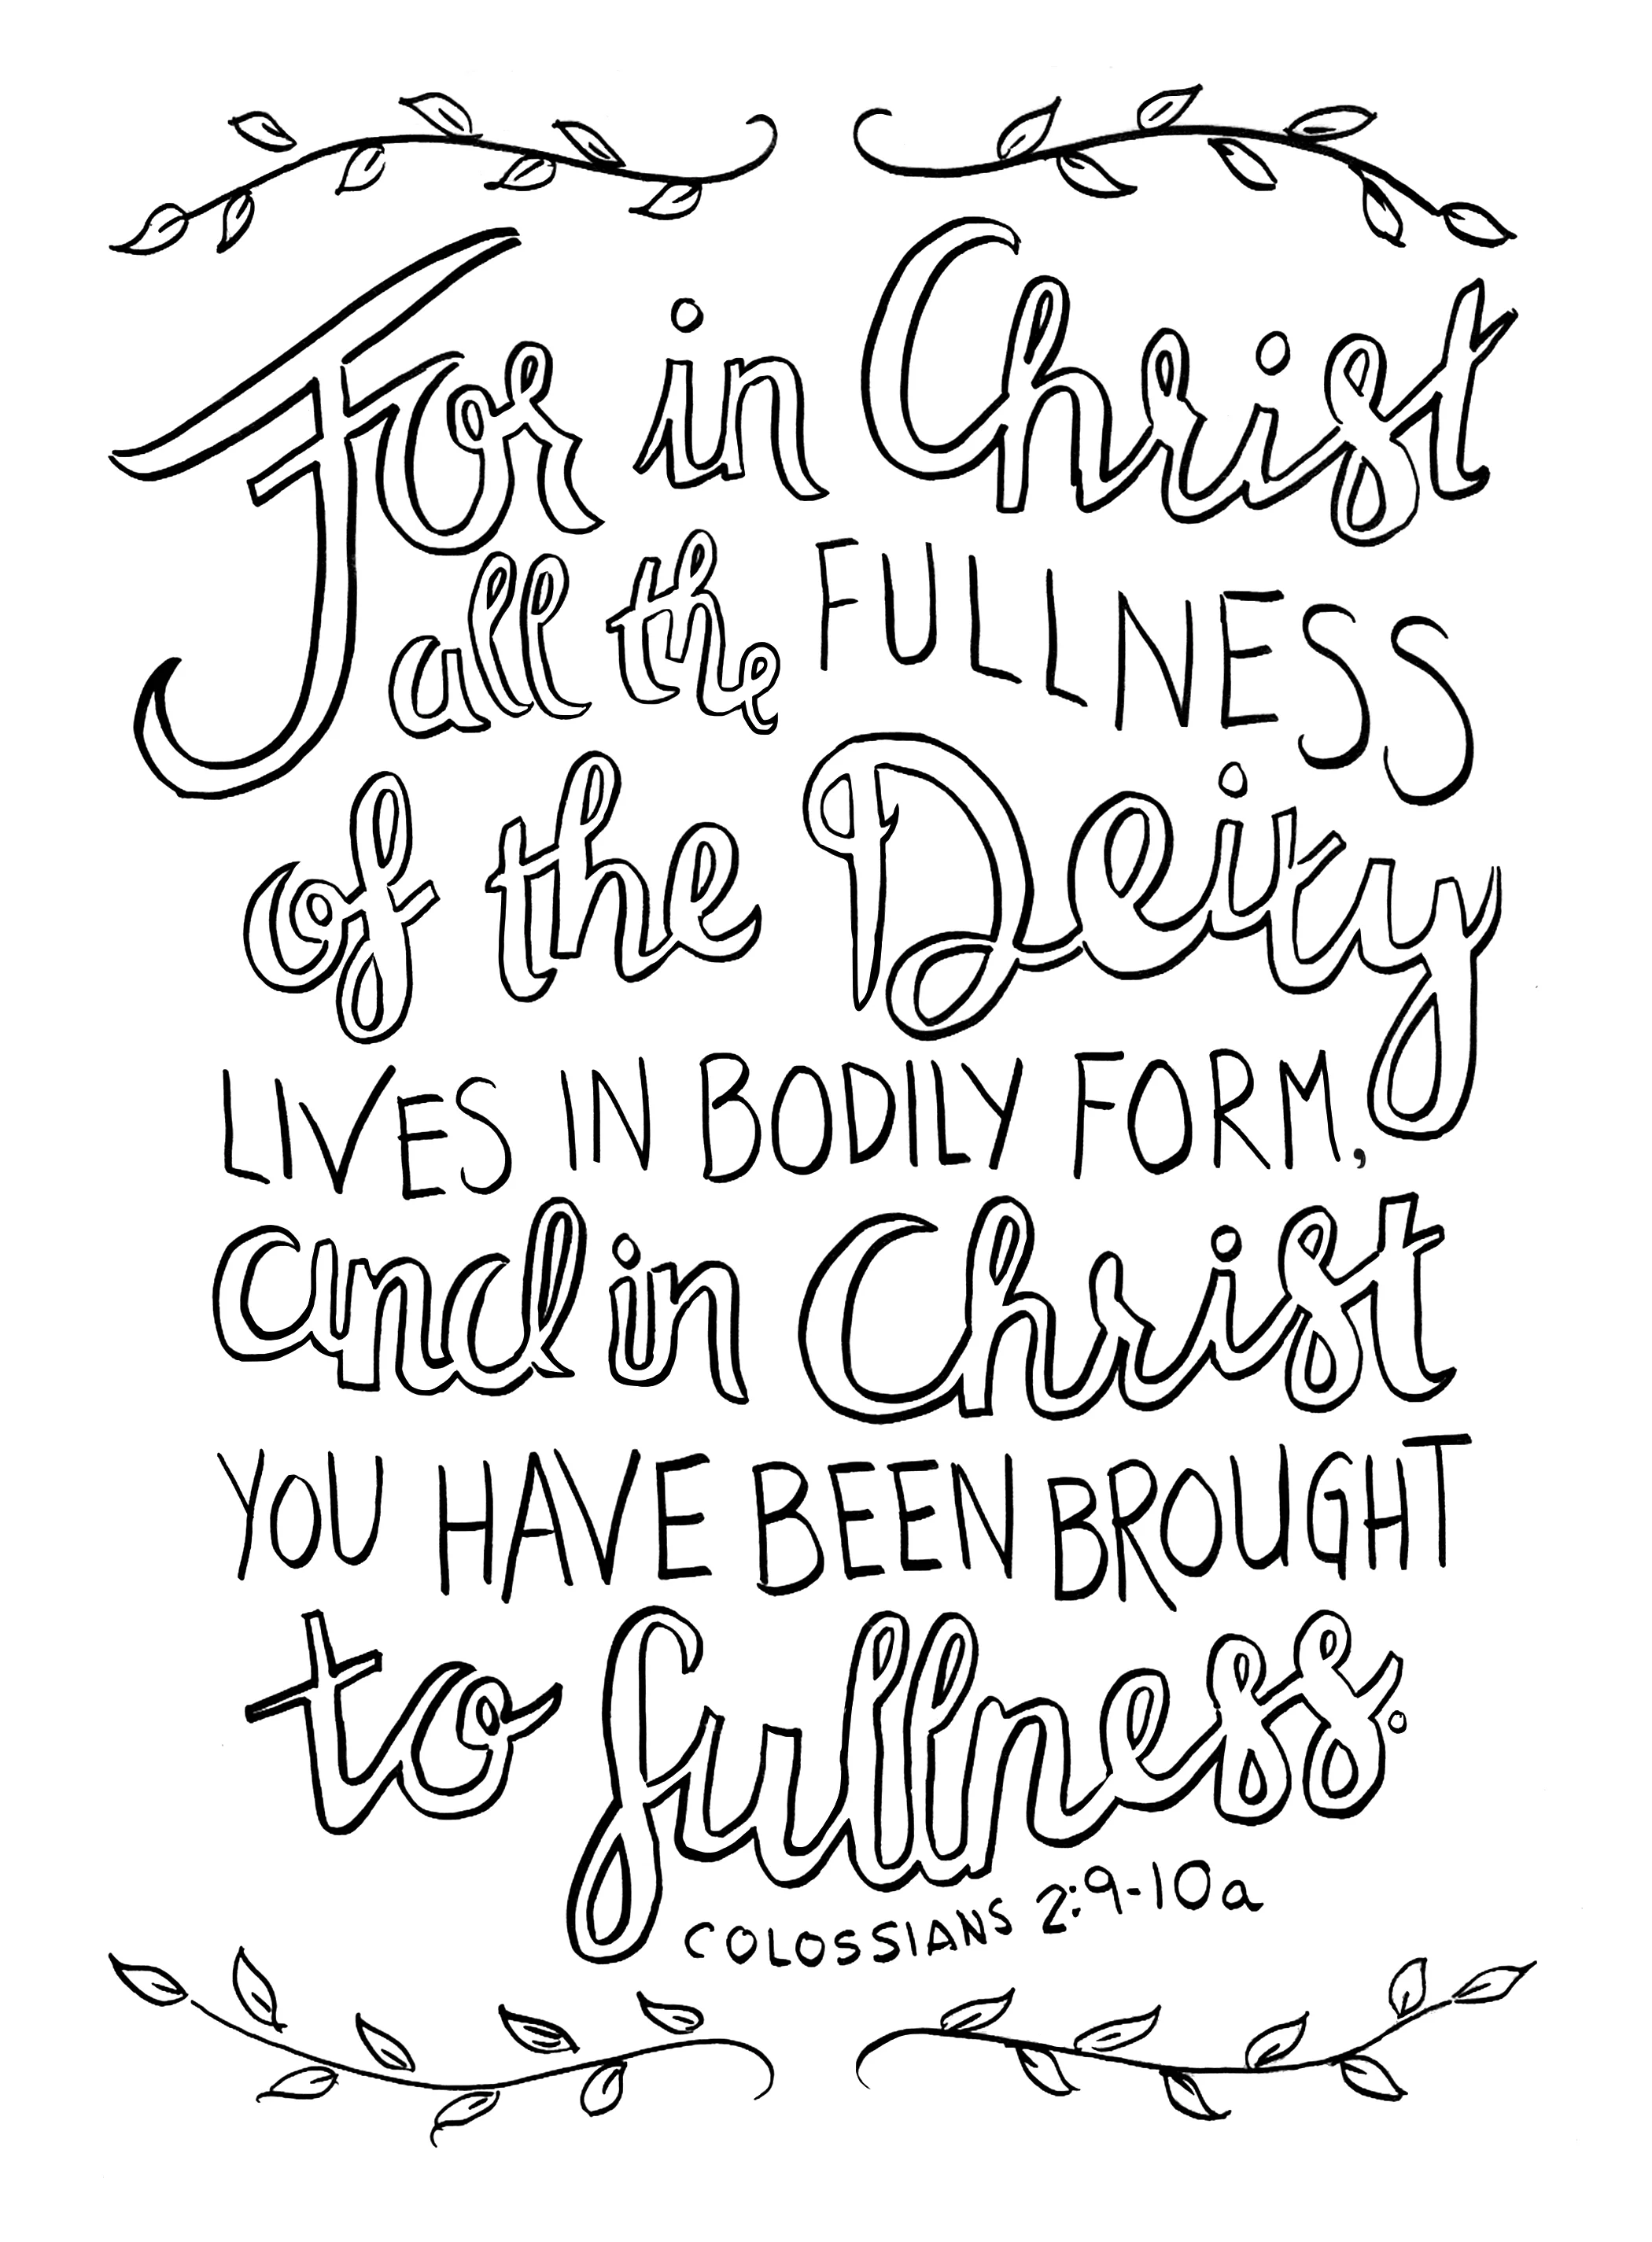 For in Christ
all the FULLNESS
of the Deity
LIVES IN BODILY FORM,
and in Christ
YOU HAVE BEEN BROUGHT
to fullness.
COLOSSIANS 2:9-10a